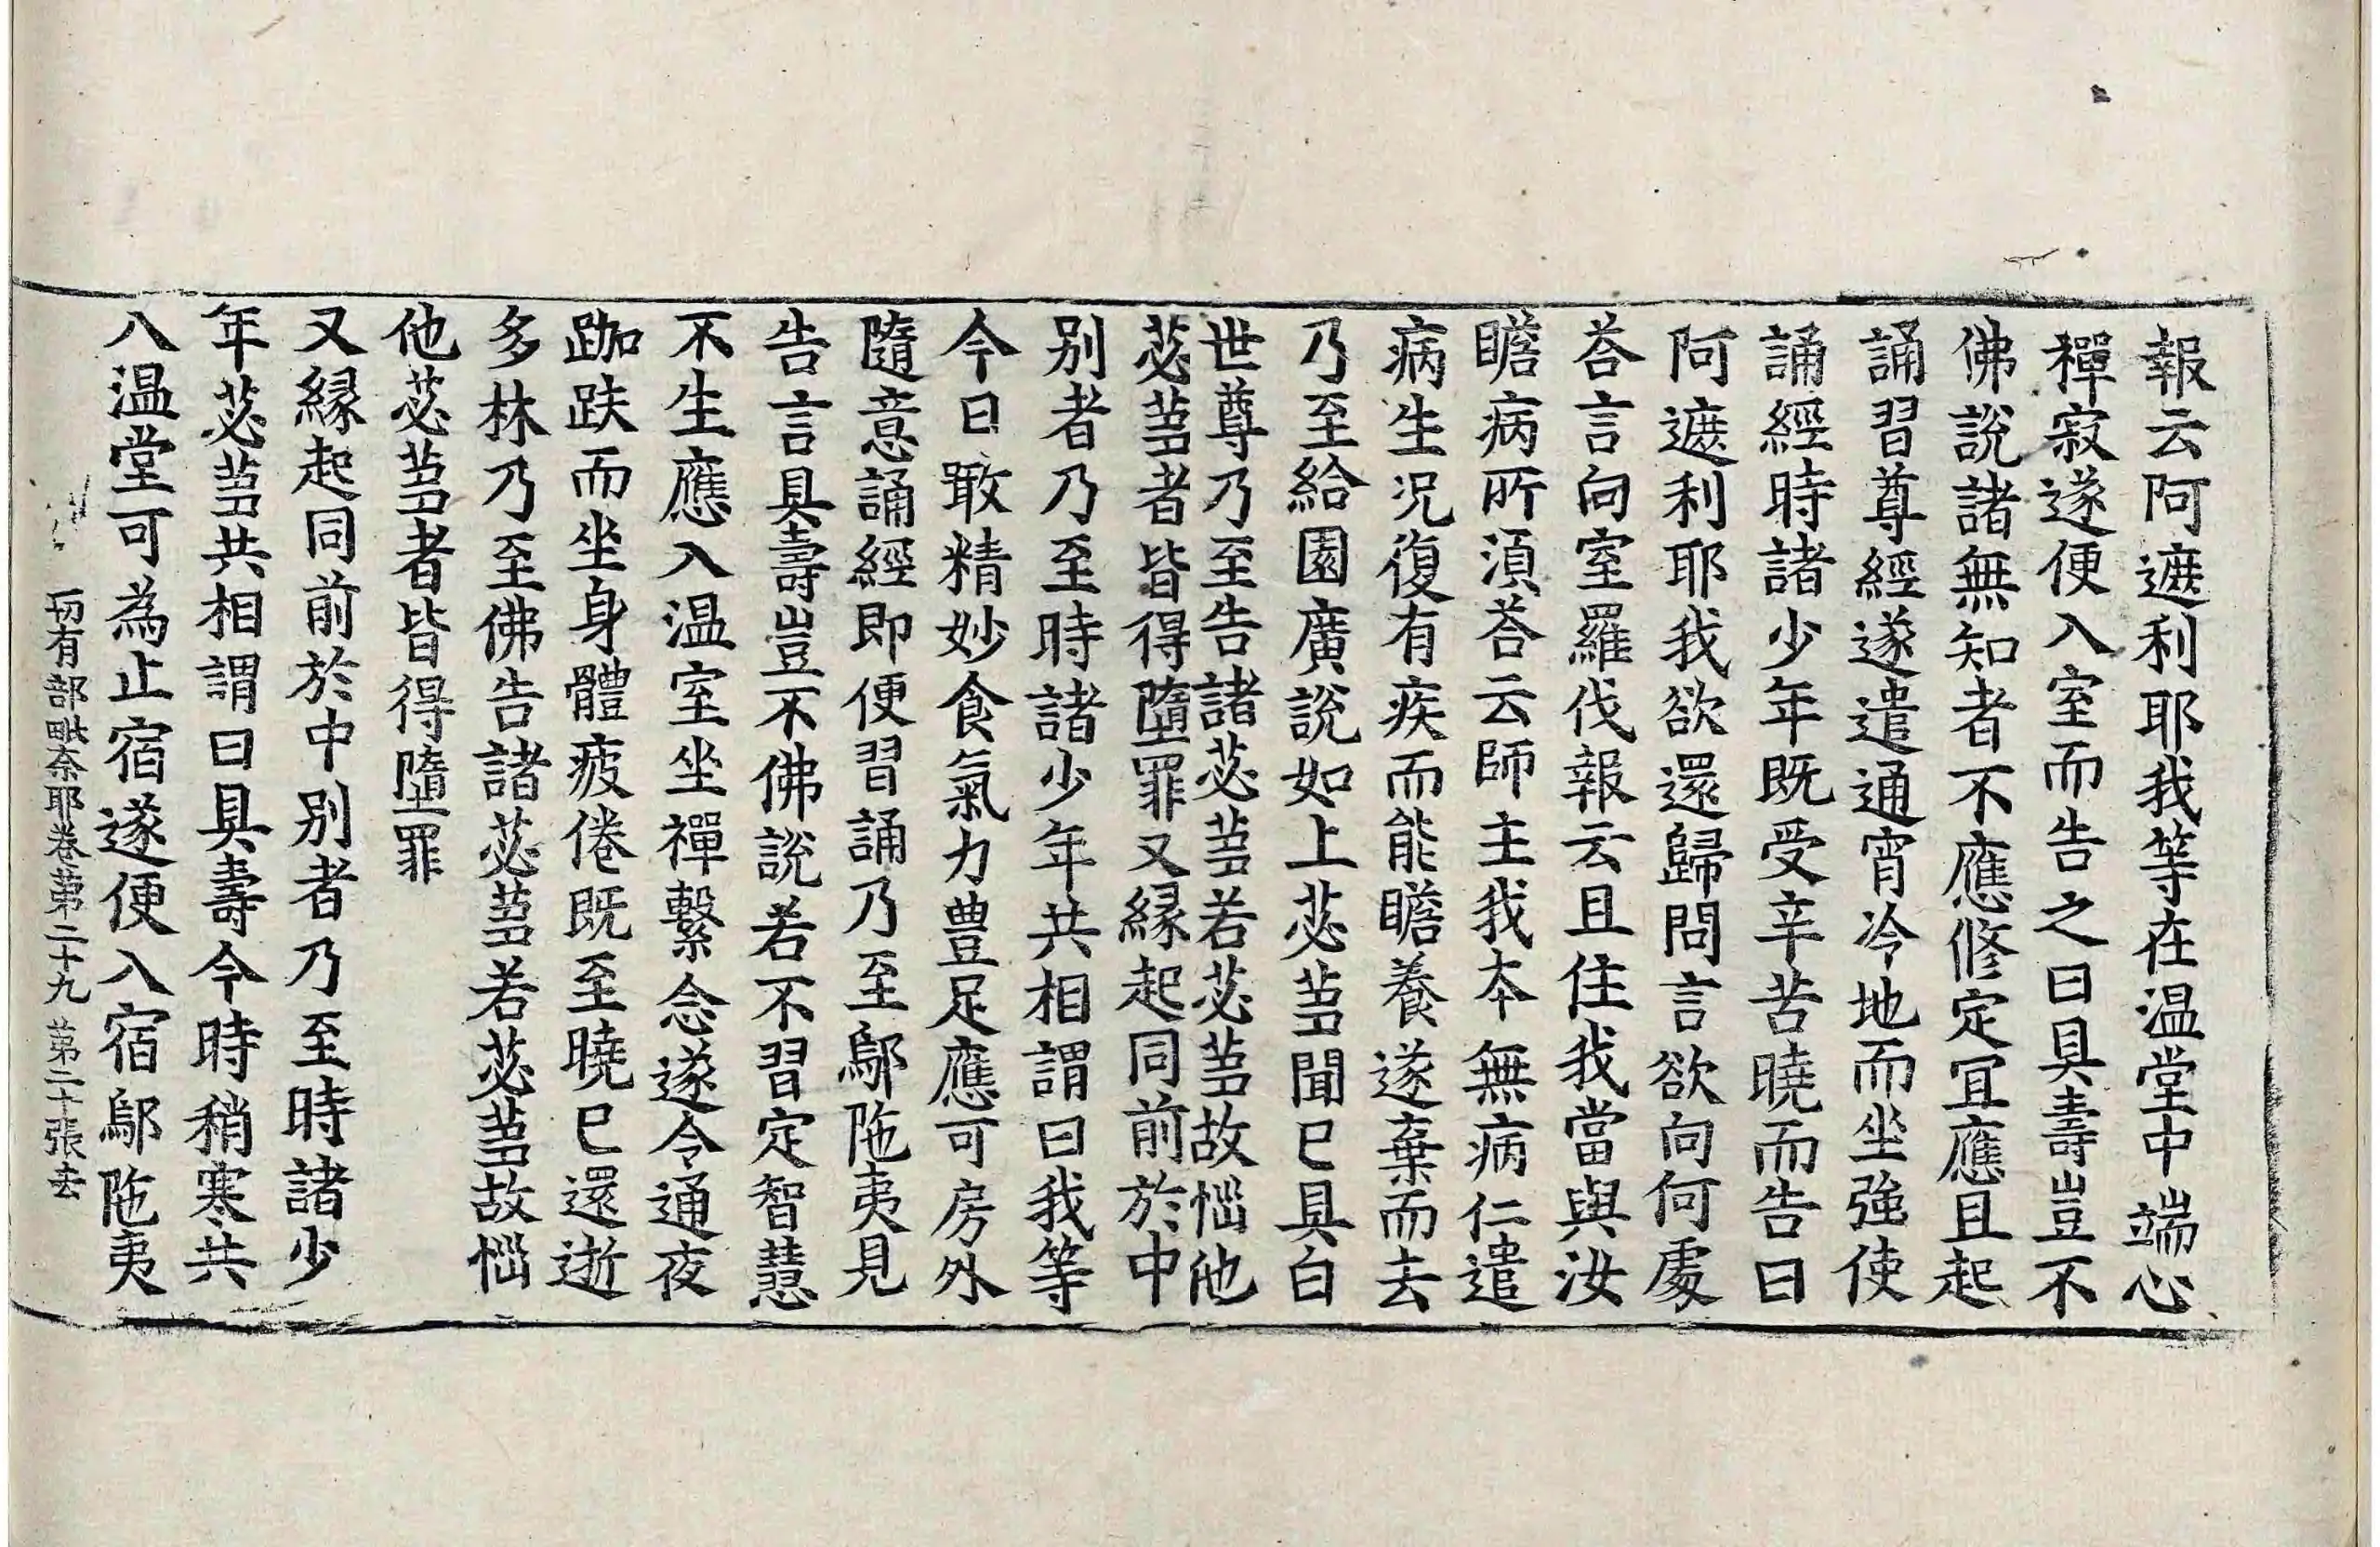 報云阿遮利耶我等在温堂中端心
禪寂遂便入室而告之曰具壽豈不
佛說諸無知者不應修定冝應且起
誦習尊經遂遣通宵冷地而坐強使
誦經時諸少年既受辛苦曉而告曰
阿遮利耶我欲還歸問言欲向何處
荅言向室羅伐報云且住我當與汝
瞻病所湏荅云師主我本無病仁遣
病生况復有疾而能瞻養遂棄而去
乃至給園廣說如上苾蒭聞已具白
世尊乃至告諸苾蒭若苾蒭故惱他
苾蒭者皆得墮罪又緣起同前於中
别者乃至時諸少年共相謂曰我等
今日噉精妙食氣力豊足應可房外
隨意誦經即便習誦乃至鄔陁夷見
告言具壽豈不佛說若不習定智慧
不生應入温室坐禪繫念遂令通夜
跏趺而坐身體疲倦既至曉已還逝
多林乃至佛告諸苾蒭若苾蒭故惱
他苾蒭者皆得墮罪
又緣起同前於中別者乃至時諸少
年苾蒭共相謂曰具壽今時稍寒共
入温堂可為止宿遂便入宿鄔陁夷
一切有部毗奈耶卷苐二十九 苐二十張 去